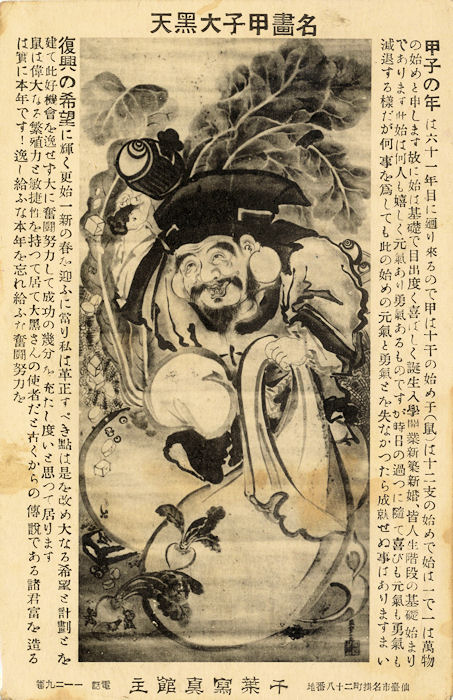 名畫甲子大黑天
甲子の年は六十一年目に廻り來るので甲は十干の始め子(鼠)は十二支の始めで始は一で一は萬物
の始めと申します故に始は基礎で目出度く喜ばしく誕生入學開業新築新婚皆人生階段の基礎始まり
であります此始は何人も嬉しく元氣あり勇氣あるものですが時日の過つに隨て喜びも元氣も勇氣も
減退する樣だが何事を爲しても此の始めの元氣と勇氣とを失なかつたら成就せぬ事はありますまい
復興の希望に輝く更始一新の春を迎ふに當り私は革正すべき點は是を改め大なる希望と計劃とを
建て此好機會を逸せず大に奮鬪努力して成功の幾分を充たし度いと思つて居ります
鼠は偉大なる繁殖力と敏捷性を持つて居て大黑さんの使者だと古くからの傳說である諸君富を造る
は實に本年です!逸し給ふな本年を忘れ給ふな奮鬪努力を
仙臺市名掛町二十八番地
千葉寫眞館主
電話一一二九番